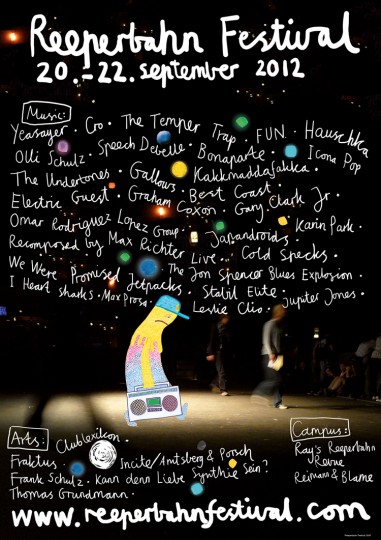 Reeperbahn Festival
20.-22. september 2012
Music:
Yeasayer · Cro · The Temper Trap · FUN · Hauschka
Olli Schulz · Speech Debelle · Bonaparte · Icona Pop
The Undertones · Gallows · Kakkmaddafakka ·
Electric Guest · Graham Coxon · Best Coast · Gary Clark Jr ·
Omar Rodriguez Lopez Group · Japandroids · Karin Park ·
Recomposed by Max Richter Live · Cold Specks ·
We Were Promised Jetpacks · The Jon Spencer Blues Explosion ·
I Heart Sharks · Max Prosa · Stabil Elite · Leslie Clio · Jupiter Jones ·
Arts:
Clublexikon ·
Fraktus · Incite/Amtsberg & Porsch
Frank Schulz · Kann denn Liebe Synthie Sein?
Thomas Grundmann ·
Campus:
Ray's Reeperbahn
Revue
Reimann & Blame
www.reeperbahnfestival.com